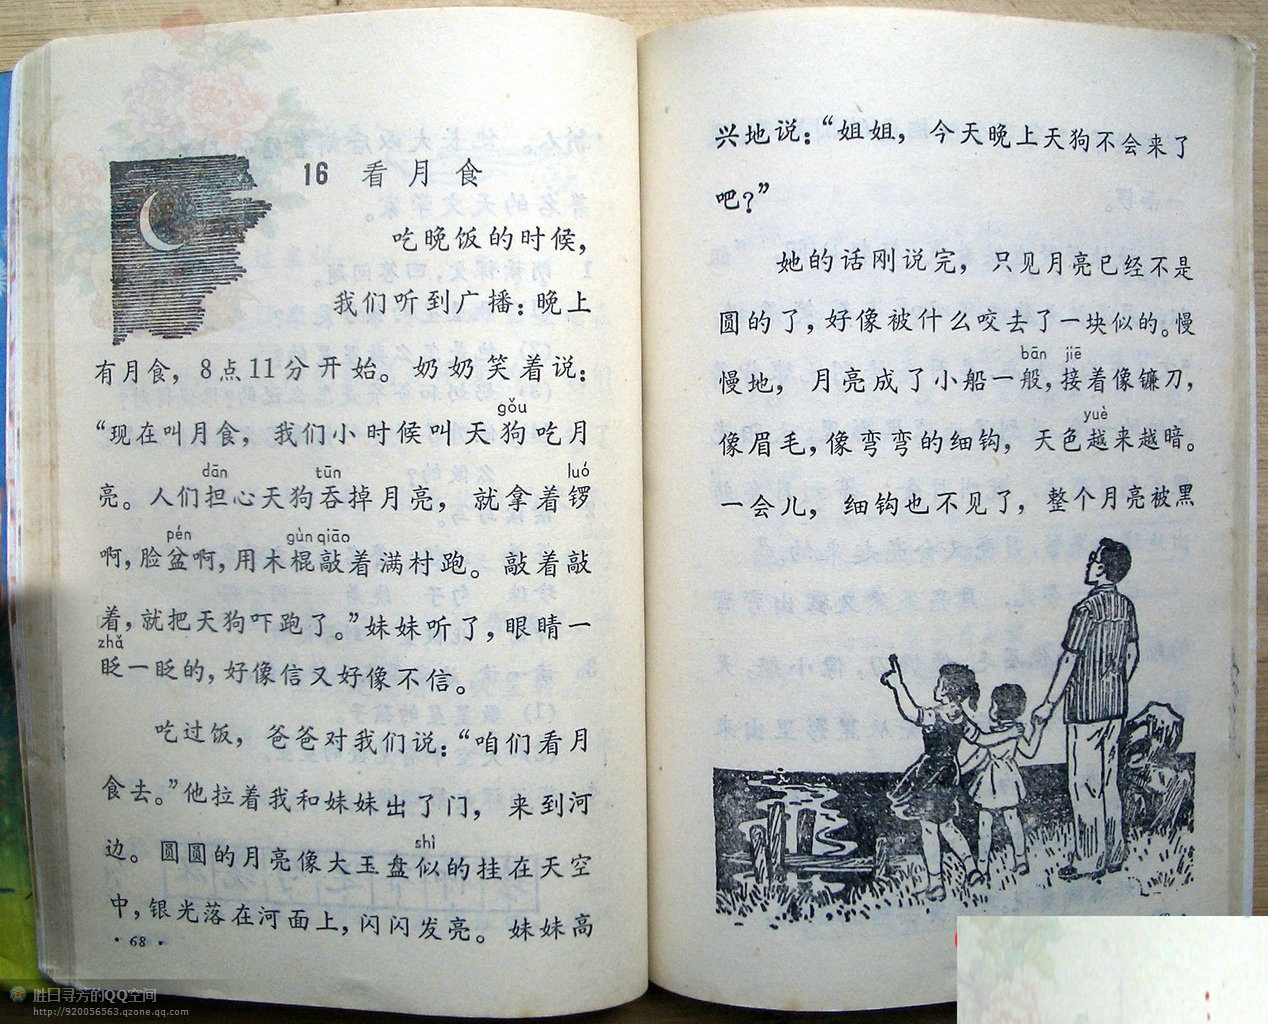 16 看月食
吃晚饭的时候，
我们听到广播：晚上
有月食，8点11分开始。奶奶笑着说：
gǒu
“现在叫月食，我们小时候叫天狗吃月
dān tūn luó
亮。人们担心天狗吞掉月亮，就拿着锣
pén gùn qiāo
啊，脸盆啊，用木棍敲着满村跑。敲着敲
着，就把天狗吓跑了。”妹妹听了，眼睛一
zhǎ
眨一眨的，好像信又好像不信。
吃过饭，爸爸对我们说：“咱们看月
食去。”他拉着我和妹妹出了门，来到河
shì
边。圆圆的月亮像大玉盘似的挂在天空
中，银光落在河面上，闪闪发亮。妹妹高
·68·
兴地说：“姐姐，今天晚上天狗不会来了
吧？”
她的话刚说完，只见月亮已经不是
圆的了，好像被什么咬去了一块似的。慢
bān jiē
慢地，月亮成了小船一般，接着像镰刀，
yuè
像眉毛，像弯弯的细钩，天色越来越暗。
一会儿，细钩也不见了，整个月亮被黑
胜日寻芳的QQ空间
http://920056563.qzone.qq.com